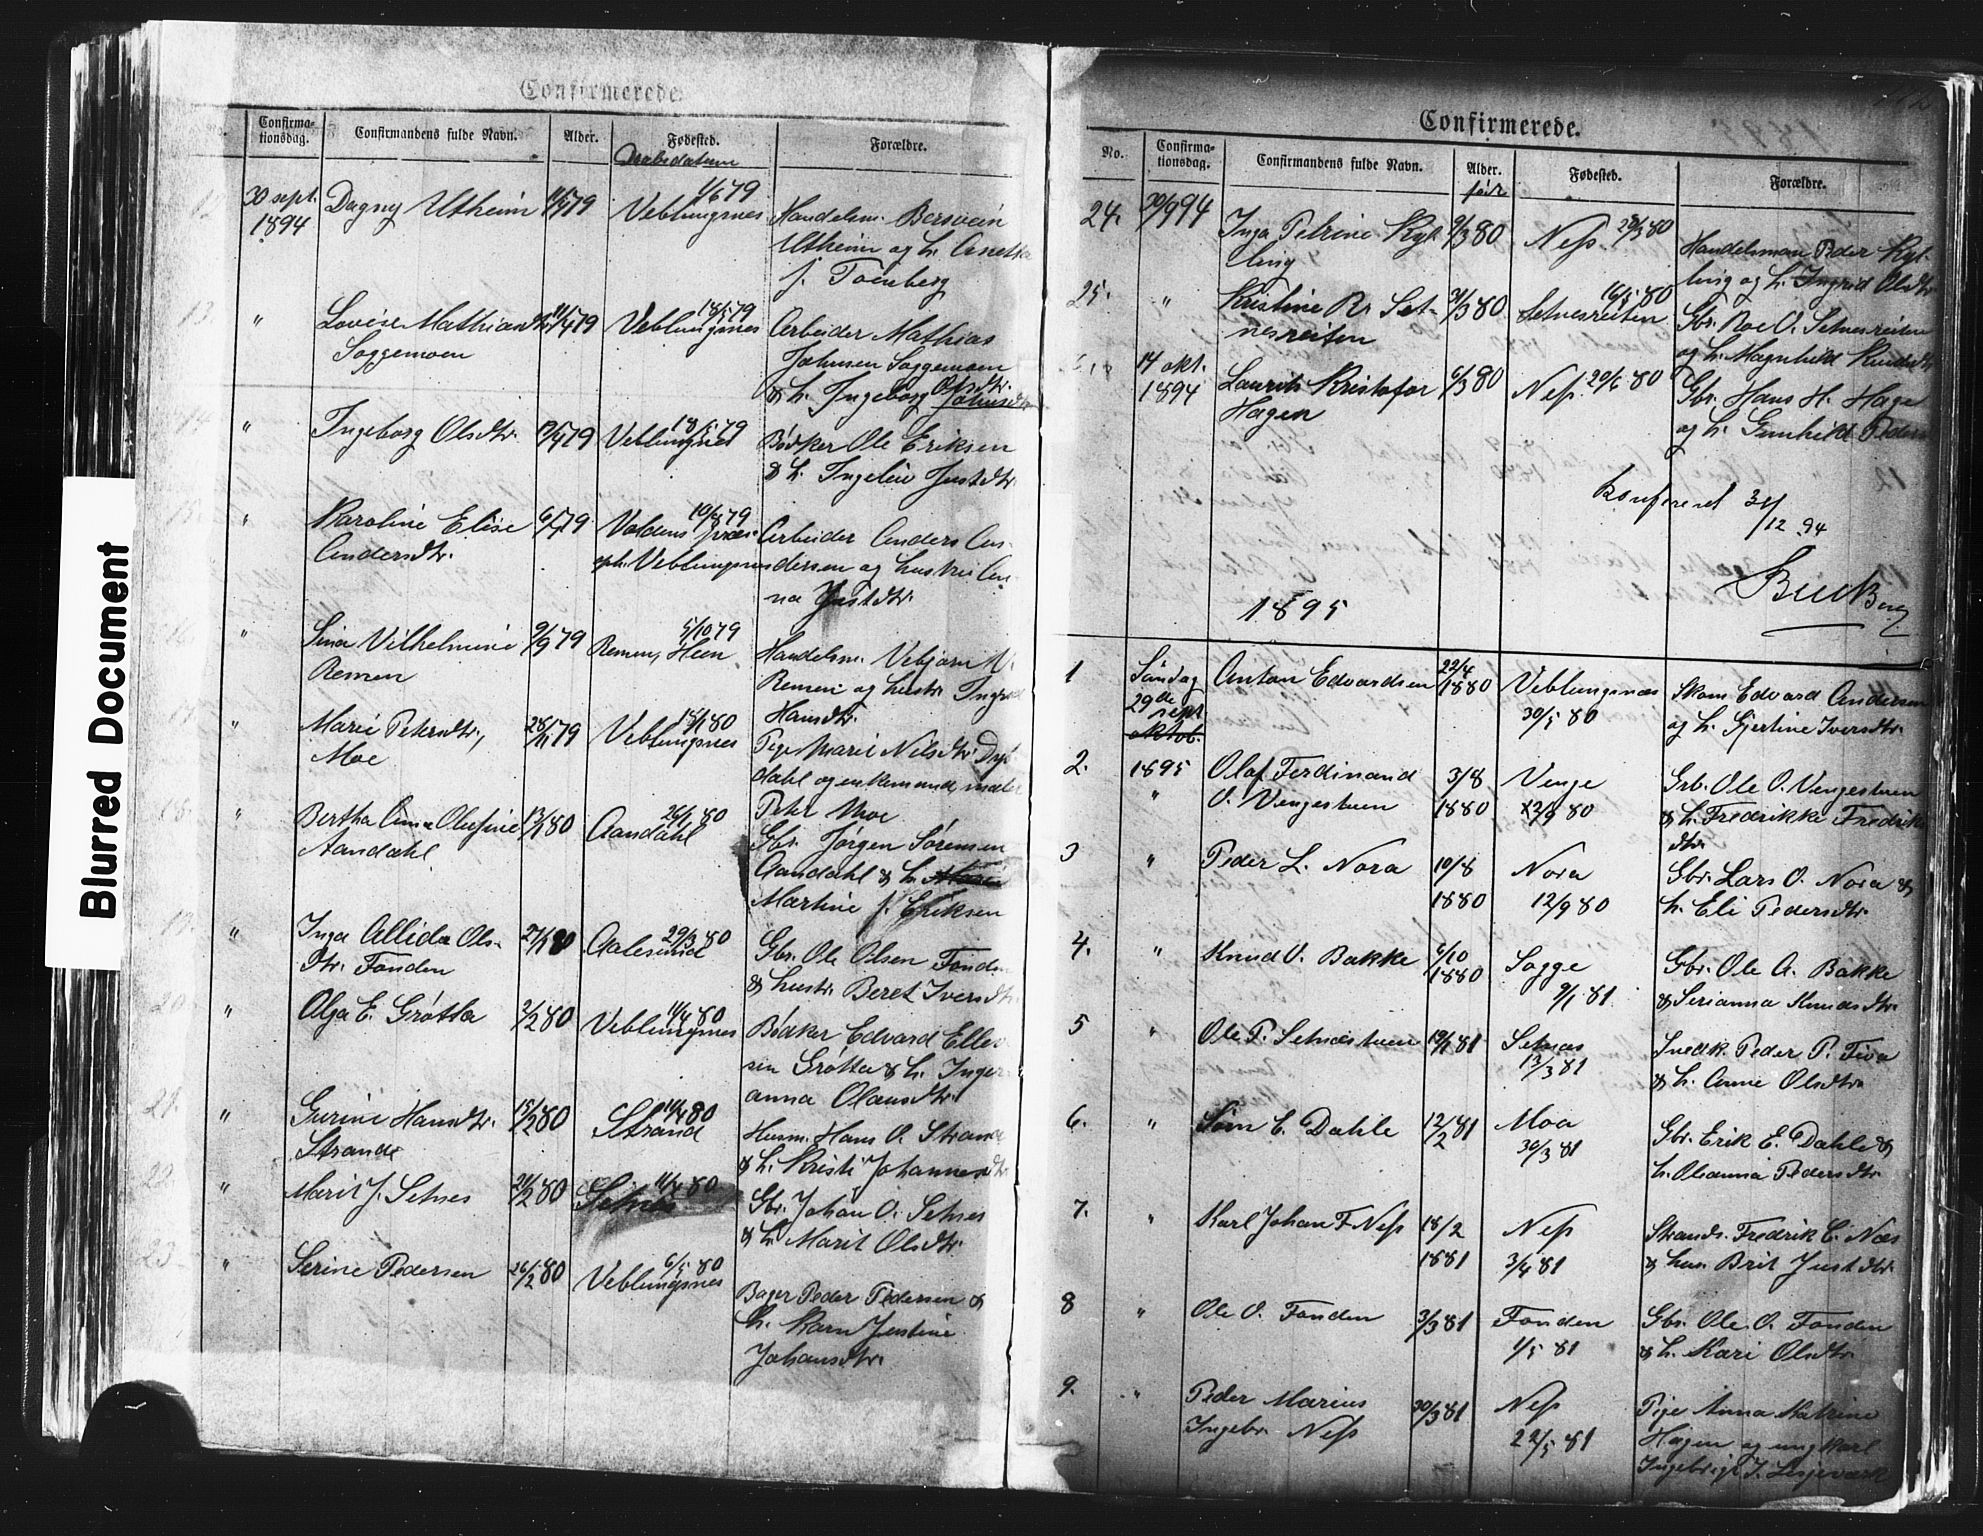 Blurred Document
Confirmerede.
No.
Confirma-
tionsdag.
Confirmandens fulde Navn.
Alder.
Fødested.
Daabsdatum
Forældre.
12
30 sept.
1894
Dagny Utheim
79
Veblungsnes
1/6 79
Handelsm. Bersvein
Utheim og h. Anetta
f. Tornberg
13
"
Lovise Mathiasdtr
Soggemoen
11/4 79
Veblungsnes
18/5 79
Arbeider Mathias
Johnsen Soggemoen
& h. Ingeborg Olsdtr.
14
"
Ingeborg Olsdtr.
79
Veblungsnes
18/5 79
Bødker Ole Eriksen
& h. Ingelin Justdtr.
15
"
Karoline Elise
Andersdtr.
79
Voldens præs
gjeld Veblungsnes
79
Arbeider Anders An-
dersen og hustru An-
na Justdtr.
16
"
Sina Vilhelmine
Remen
9/9 79
Remen, Heen
5/10 79
Handelsm. Vebjørn
Remen og hustr. Ingrid
Hansdtr.
17
"
Marie Petersdtr.,
Moe
28/11 79
Veblungsnes
18/1 80
Pige Marie Nilsdtr. Dys
dahl og enkemand maler
Peter Moe
18.
"
Bertha Anna Olufine
Aandahl
13/1 80
Aandahl
26/1 80
Gbr. Jørgen Sørensen
Aandahl & h.
Martine f. Eriksen
19.
"
Inga Allida Ols-
dtr. Fonden
27/1 80
Aalesund
29/3 80
Gbr. Ole Olsen Fonden
& hustr. Beret Iversdtr.
20.
"
Olga E. Grøtta
2/2 80
Veblungsnes
11/4 80
Bødker Edvard Elle
sen Grøtta & h. Inger
anna Olausdtr.
21.
"
Gurine Hansdtr.
Strande
15/2 80
Strand
11/4 80
Husm. Hans O. Strand
& h. Kristi Johannesdtr.
22.
"
Marit J. Setnes
21/2 80
Setnes
11/4 80
Gbr. Johan O. Setnes
& h. Marit Olsdtr.
23
"
Serine Pedersen
26/2 80
Veblungsnes
6/5 80
Bager Peder Pedersen &
h. Karn Justine
Johansdtr.
Confirmerede.
No.
Confirma-
tionsdag.
Confirmandens fulde Navn.
Alder.
før
Fødested.
Forældre.
24.
30/9 94
Inga Petrine Kyl
ling
9/3 80
Ness.
28/3 80
Handelsman Peder Kyl-
ling og h. Ingrid Olsdtr
25.
"
Kristine R. Set-
nesreiten
31/3 80
Setnesreiten
16/5 80
Gbr. Roe O. Setnesreiten
og h. Magnhild Knudsdtr
14 okt.
1894
Laurits Kristofer
Hagen
6/3 80
Ness.
80
Gbr. Hans H. Hage
og h. Gunhild Peders
Konfereret 31/12 94
1895
1
Søndag
29de
sept.
oktob.
1895
Anton Edvardsen
22/4
1880
Veblungsnæs
30/5 80
Skom. Edvard Andersen
og h. Gjertine Iversdtr.
2.
"
Olaf Ferdinand
O. Vengestuen
3/8
1880
Venge
12/9 80
Grb. Ole O. Vengestuen
& h. Fredrikke Fredriks
dtr.
3
"
Peder L. Nora
10/8
1880
Nora
12/9 80
Gbr. Lars O. Nora &
h. Eli Pedersdtr.
4.
"
Knud O. Bakke
6/10
1880
Sogge
9/1 81.
Gbr. Ole A. Bakke
& Serianna Knudsdtr.
5
"
Ole P. Setnæstuen
19/1 81
Setnæs
13/3 81
Snedk. Peder P. Fiva
& h. Anne Olsdtr.
6.
"
E. Dahle
12/2 81
Moa
30/3 81
Gbr. Erik E. Dahle &
h. Oleanna Pedersdtr.
7.
"
Karl Johan F Ness
18/2
1881
Ness
3/4 81
Strands. Fredrik C. Næs
& hus. Brit Justdtr.
8
"
Ole O. Fonden
3/3 81
Fonden
1/5 81
Gbr. Ole O. Fonden
& h. Kari Olsdtr.
9.
"
Peder Marius
Ingebr. Ness
30/3 81
Ness
22/5 81
Pige Anna Katrine
Hagen og ungkarl
Ingebrigt J. Lesjeværk